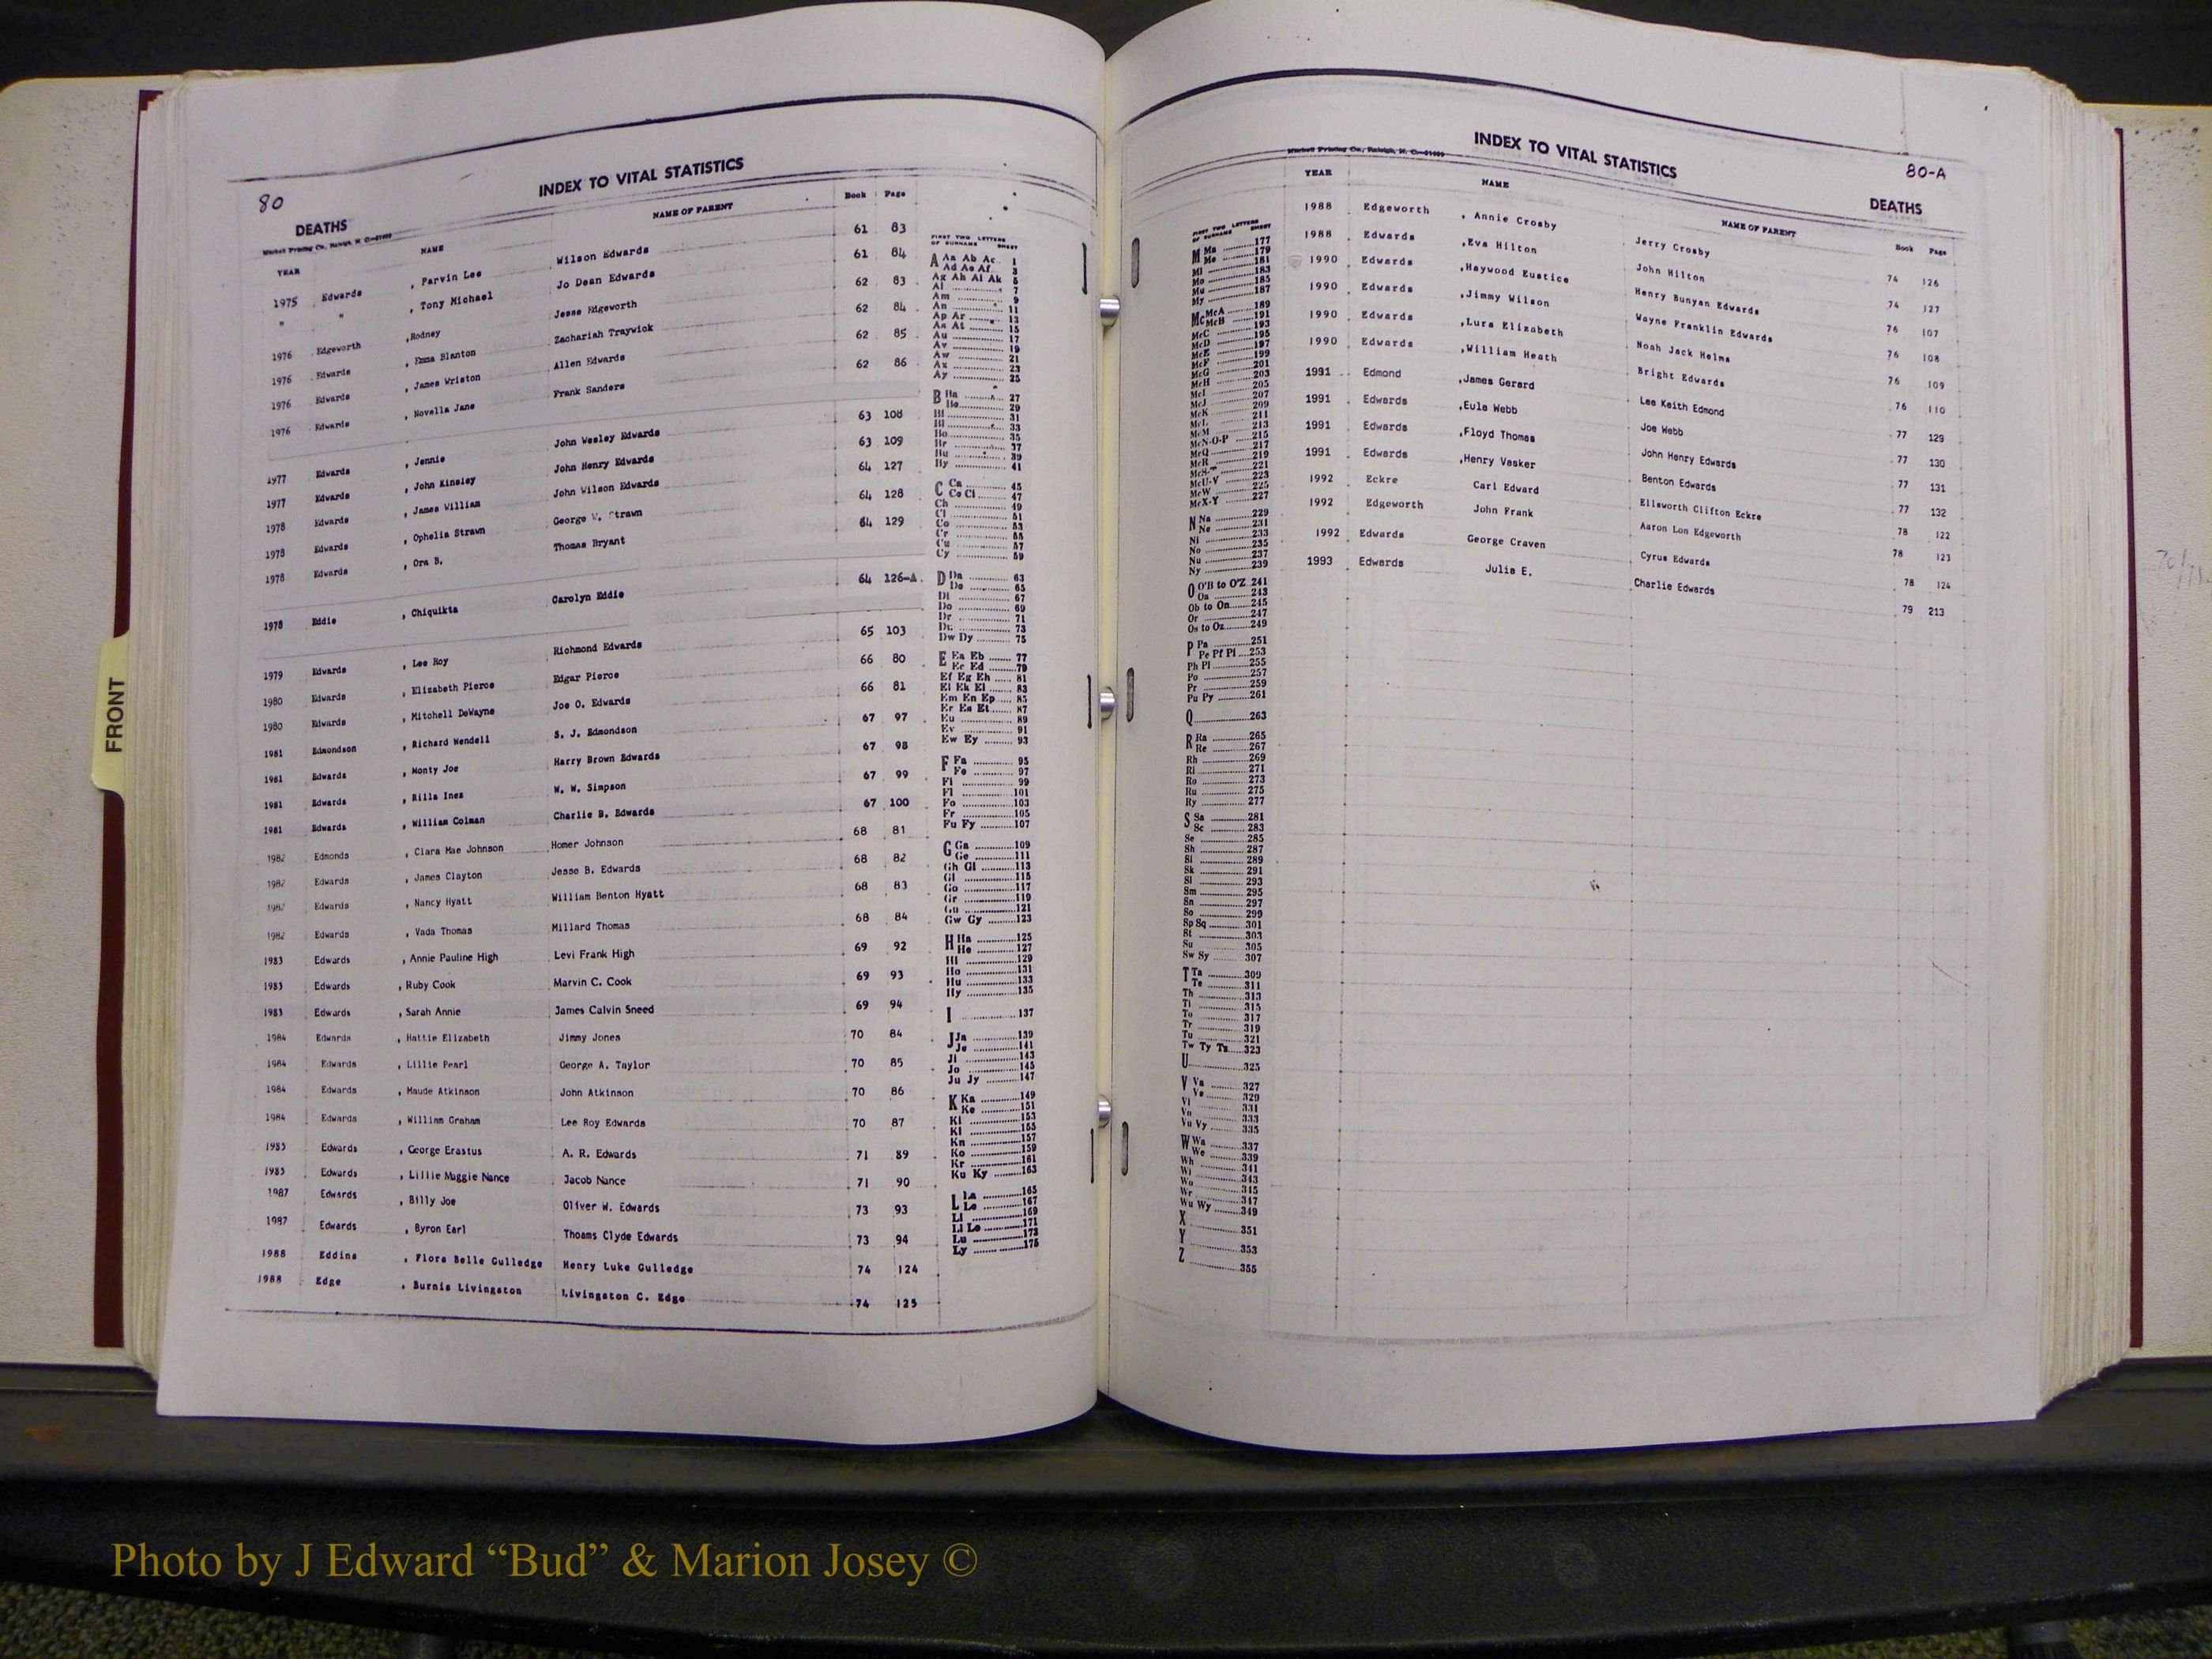 80
INDEX TO VITAL STATISTICS
DEATHS
Mitchell Printing Co., Raleigh, N. C.
YEAR NAME NAME OF PARENT Book Page
1975 Edwards , Parvin Lee Wilson Edwards 61 83
" " , Tony Michael Jo Dean Edwards 61 84
1976 Edgeworth ,Rodney Jesse Edgeworth 62 83
1976 Edwards , Emma Blanton Zachariah Traywick 62 84
1976 Edwards , James Wriston Allen Edwards 62 85
1976 Edwards , Novella Jane Frank Sanders 62 86
1977 Edwards , Jennie John Wesley Edwards 63 108
1977 Edwards , John Kinsley John Henry Edwards 63 109
1978 Edwards , James William John Wilson Edwards 64 127
1978 Edwards , Ophelia Strawn George W. Strawn 64 128
1978 Edwards , Ora B. Thomas Bryant 64 129
1978 Eddie , Chiquikta Carolyn Eddie 64 126-A
1979 Edwards , Lee Roy Richmond Edwards 65 103
1980 Edwards , Elizabeth Pierce Edgar Pierce 66 80
1980 Edwards , Mitchell DeWayne Joe O. Edwards 66 81
1981 Edmondson , Richard Wendell S. J. Edmondson 67 97
1981 Edwards , Monty Joe Harry Brown Edwards 67 98
1981 Edwards , Rilla Inez W. W. Simpson 67 99
1981 Edwards , William Colman Charlie B. Edwards 67 100
1982 Edmonds , Clara Mae Johnson Homer Johnson 68 81
1982 Edwards , James Clayton Jesse B. Edwards 68 82
1982 Edwards , Nancy Hyatt William Benton Hyatt 68 83
1982 Edwards , Vada Thomas Millard Thomas 68 84
1983 Edwards , Annie Pauline High Levi Frank High 69 92
1983 Edwards , Ruby Cook Marvin C. Cook 69 93
1983 Edwards , Sarah Annie James Calvin Sneed 69 94
1984 Edwards , Hattie Elizabeth Jimmy Jones 70 84
1984 Edwards , Lillie Pearl George A. Taylor 70 85
1984 Edwards , Maude Atkinson John Atkinson 70 86
1984 Edwards , William Graham Lee Roy Edwards 70 87
1985 Edwards , George Erastus A. R. Edwards 71 89
1985 Edwards , Lillie Maggie Nance Jacob Nance 71 90
1987 Edwards , Billy Joe Oliver W. Edwards 73 93
1987 Edwards , Byron Earl Thoams Clyde Edwards 73 94
1988 Eddins , Flora Belle Gulledge Henry Luke Gulledge 74 124
1988 Edge , Burnis Livingston Livingston C. Edge 74 125
FIRST TWO LETTERS
OF SURNAME SHEET
A Aa Ab Ac 1
Ad Ae Af 3
Ag Ah Ai Ak 5
Al 7
Am 9
An 11
Ap Ar 13
As At 15
Au 17
Av 19
Aw 21
Ax 23
Ay 25
B Ba 27
Be 29
Bi 31
Bl 33
Bo 35
Br 37
Bu 39
By 41
C Ca 45
Ce Ci 47
Ch 49
Cl 51
Co 53
Cr 55
Cu 57
Cy 59
D Da 63
De 65
Di 67
Do 69
Dr 71
Du 73
Dw Dy 75
E Ea Eb 77
Ec Ed 79
Ef Eg Eh 81
Ei Ek El 83
Em En Ep 85
Er Es Et 87
Eu 89
Ev 91
Ew Ey 93
F Fa 95
Fe 97
Fi 99
Fl 101
Fo 103
Fr 105
Fu Fy 107
G Ga 109
Ge 111
Gh Gi 113
Gl 115
Go 117
Gr 119
Gu 121
Gw Gy 123
H Ha 125
He 127
Hi 129
Ho 131
Hu 133
Hy 135
I 137
J Ja 139
Je 141
Ji 143
Jo 145
Ju Jy 147
K Ka 149
Ke 151
Ki 153
Kl 155
Kn 157
Ko 159
Kr 161
Ku Ky 163
L La 165
Le 167
Li 169
Ll Lo 171
Lu 173
Ly 175
FRONT
INDEX TO VITAL STATISTICS
Mitchell Printing Co., Raleigh, N. C.
80-A
DEATHS
YEAR NAME NAME OF PARENT Book Page
1988 Edgeworth , Annie Crosby Jerry Crosby 74 126
1988 Edwards ,Eva Hilton John Hilton 74 127
1990 Edwards ,Haywood Eustice Henry Bunyan Edwards 76 107
1990 Edwards ,Jimmy Wilson Wayne Franklin Edwards 76 108
1990 Edwards ,Lura Elizabeth Noah Jack Helms 76 109
1990 Edwards ,William Heath Bright Edwards 76 110
1991 Edmond ,James Gerard Lee Keith Edmond 77 129
1991 Edwards ,Eula Webb Joe Webb 77 130
1991 Edwards ,Floyd Thomas John Henry Edwards 77 131
1991 Edwards ,Henry Vasker Benton Edwards 77 132
1992 Eckre Carl Edward Ellsworth Clifton Eckre 78 122
1992 Edgeworth John Frank Aaron Lon Edgeworth 78 123
1992 Edwards George Craven Cyrus Edwards 78 124
1993 Edwards Julia E. Charlie Edwards 79 213
FIRST TWO LETTERS
OF SURNAME SHEET
M Ma 177
Me 179
Mi 181
Mo 183
Mu 185
My 187
Mc McA 189
McB 191
McC 193
McD 195
McE 197
McF 199
McG 201
McH 203
McI 205
McJ 207
McK 209
McL 211
McM 213
McN-O-P 215
McQ 217
McR 219
McS- 221
McU-V 223
McW 225
McX-Y 227
N Na 229
Ne 231
Ni 233
No 235
Nu 237
Ny 239
O O'B to O'Z 241
Oa 243
Ob to On 245
Or 247
Os to Oz 249
P Pa 251
Pe Pf Pi 253
Ph Pl 255
Po 257
Pr 259
Pu Py 261
Q 263
R Ra 265
Re 267
Rh 269
Ri 271
Ro 273
Ru 275
Ry 277
S Sa 281
Sc 283
Se 285
Sh 287
Si 289
Sk 291
Sl 293
Sm 295
Sn 297
So 299
Sp Sq 301
St 303
Su 305
Sw Sy 307
T Ta 309
Te 311
Th 313
Ti 315
To 317
Tr 319
Tu 321
Tw Ty Tz 323
U 325
V Va 327
Ve 329
Vi 331
Vo 333
Vu Vy 335
W Wa 337
We 339
Wh 341
Wi 343
Wo 345
Wr 347
Wu Wy 349
X 351
Y 353
Z 355
Photo by J Edward “Bud” & Marion Josey ©